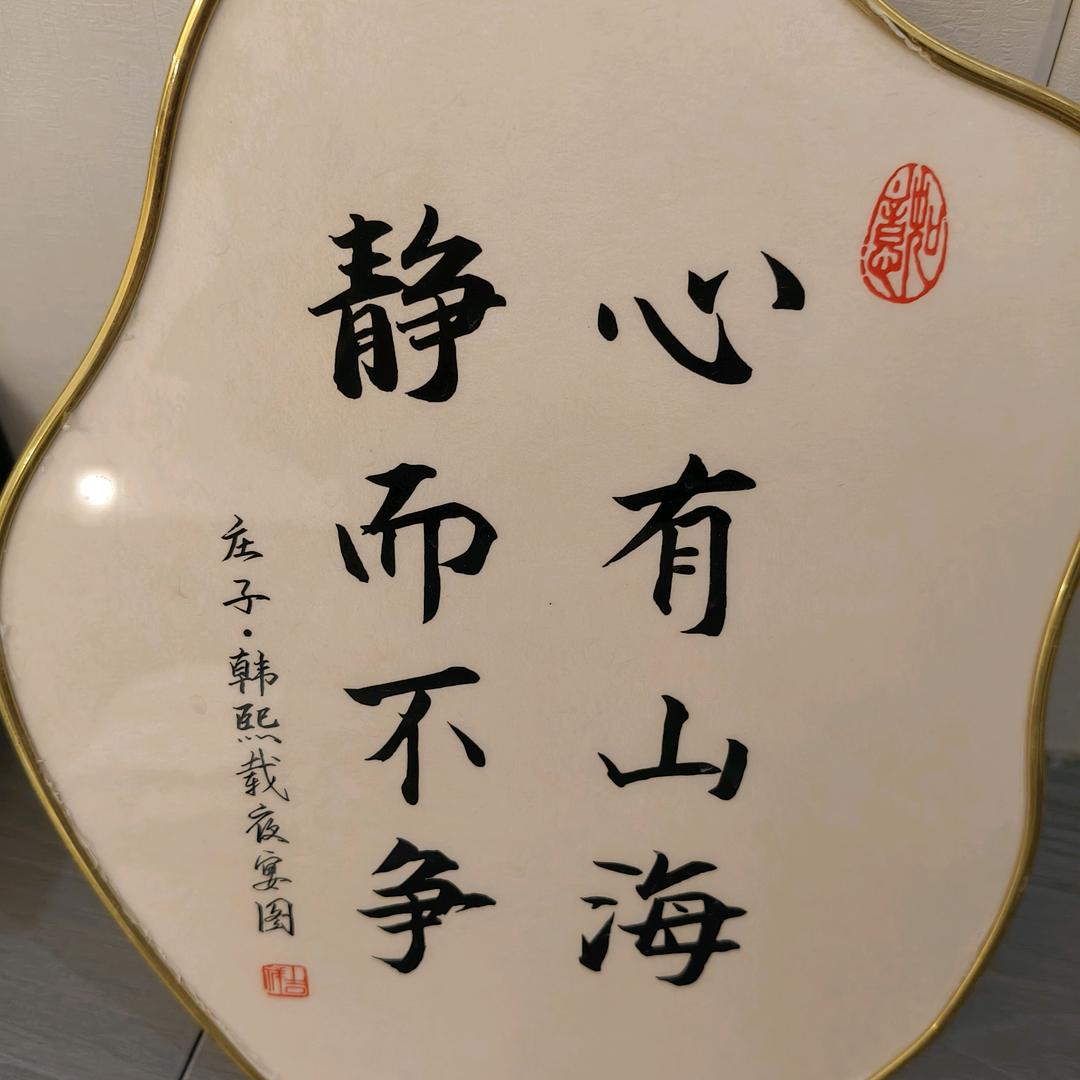 如意
心有山海
静而不争
庄子·韩熙载夜宴图
吉祥